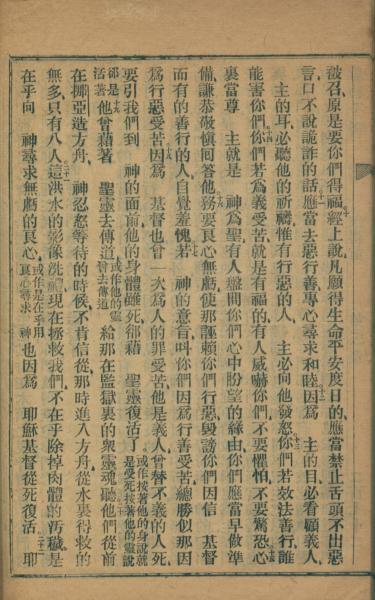 被召原是要你們得福經上說凡願得生命平安度日的應當禁止舌頭不出惡
言口不說詭詐的話應當去惡行善專心尋求和睦因爲　主的目必看顧義人
主的耳必聽他的祈禱惟有行惡的人　主必向他發怒你們若效法善行誰
能害你們你們若爲義受苦就是有福的有人威嚇你們不要懼怕不要驚恐心
裏當尊　主就是　神爲聖有人盤問你們心中盼望的緣由你們應當早做準
備謙恭敬愼回答他務要良心無虧使那誣賴你們行惡毀謗你們因信　基督
而有的善行的人自覺羞愧若　神的意旨叫你們因爲行善受苦總勝似那因
爲行惡受苦因爲　基督也曾一次爲人的罪受苦他是義人曾替不義的人死
要引我們到　神的面前他的身體雖死卻藉　聖靈復活了或作按著他的身說就是受死按著他的靈說
卻是活著他曾藉著　聖靈去傳道或作他的靈曾去傳道給那在監獄裏的衆靈魂聽他們從前
在挪亞造方舟　神忍怒等待的時候不肯信從那時進入方舟從水裏得救的
無多只有八人這洪水的影像洗禮現在拯救我們不在乎除掉肉體的汚穢是
在乎向　神尋求無虧的良心或作是在乎用良心尋求　神也因爲　耶穌基督從死復活　耶